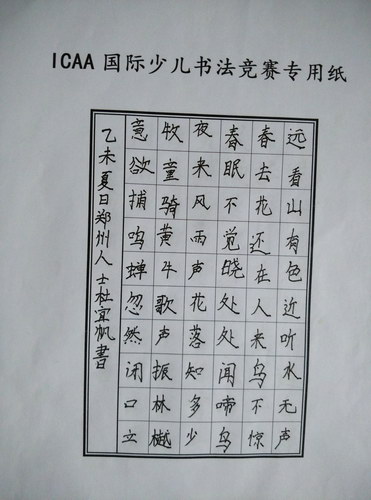 ICAA 国际少儿书法竞赛专用纸
远看山有色近听水无声
春去花还在人来鸟不惊
春眠不觉晓处处闻啼鸟
夜来风雨声花落知多少
牧童骑黄牛歌声振林樾
意欲捕鸣蝉忽然闭口立
乙未夏日郑州人士杜宜帆書